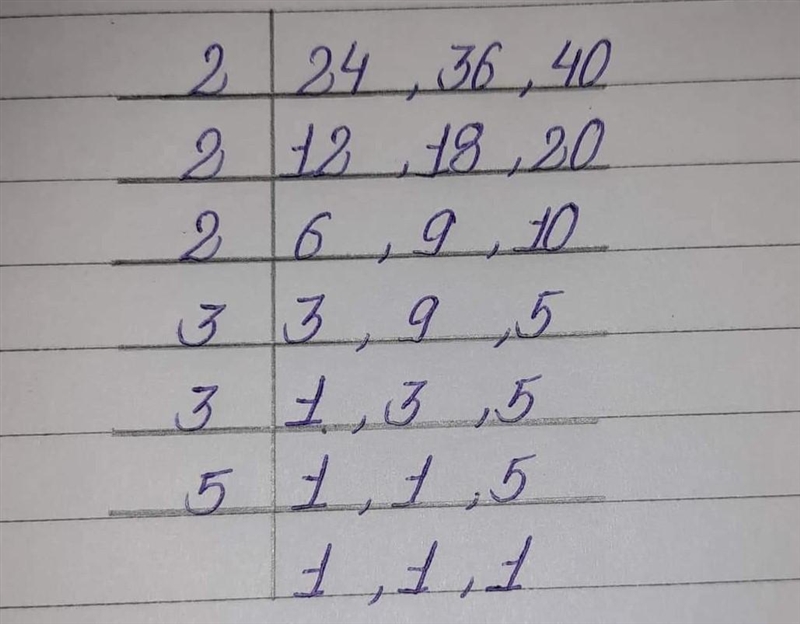 2 24 , 36 , 40
2 12 , 18 , 20
2 6 , 9 , 10
3 3 , 9 , 5
3 1 , 3 , 5
5 1 , 1 , 5
1 , 1 , 1